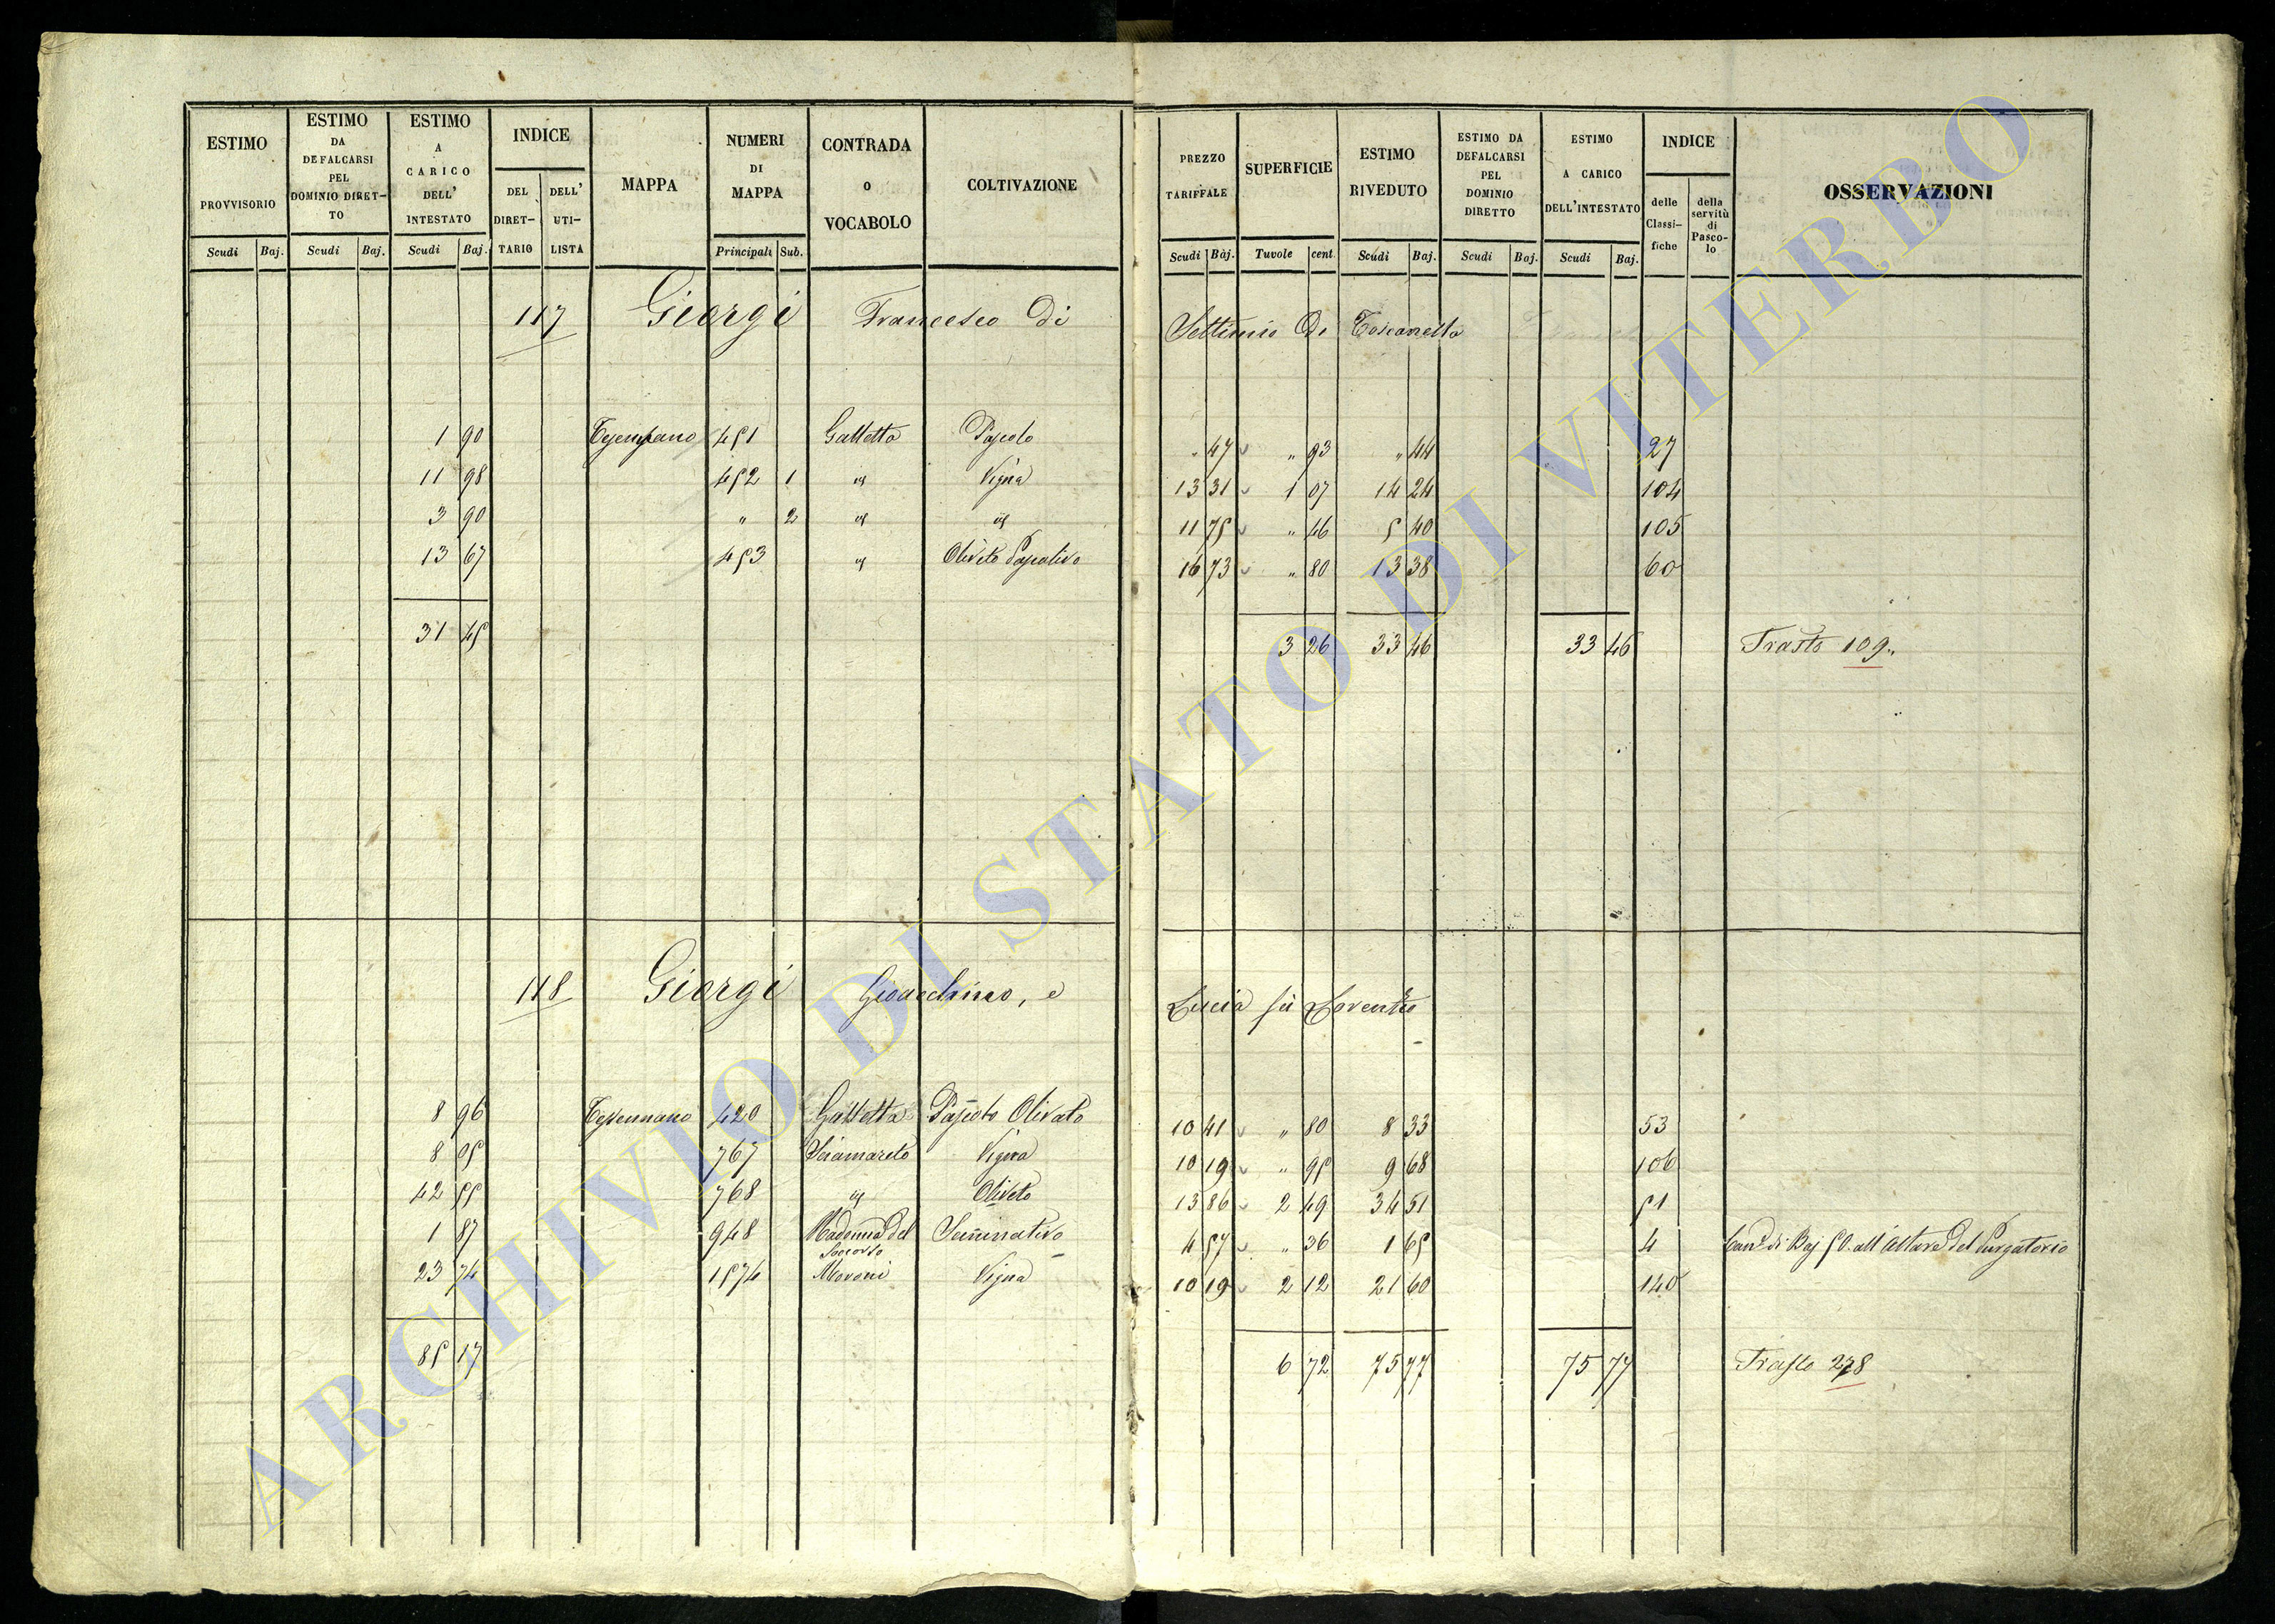 ESTIMO PROVVISORIO | ESTIMO DA DEFALCARSI PEL DOMINIO DIRET-TO | ESTIMO A CARICO DELL' INTESTATO | INDICE DEL DIRET-TARIO | DELL' UTI-LISTA | MAPPA | NUMERI DI MAPPA | CONTRADA O VOCABOLO | COLTIVAZIONE
Scudi Baj. | Scudi Baj. | Scudi Baj. | Principali Sub.
PREZZO TARIFFALE | SUPERFICIE | ESTIMO RIVEDUTO | ESTIMO DA DEFALCARSI PEL DOMINIO DIRETTO | ESTIMO A CARICO DELL'INTESTATO | INDICE delle Classi-fiche | della servitù di Pasco-lo | OSSERVAZIONI
Scudi Baj. | Tavole cent. | Scudi Baj. | Scudi Baj. | Scudi Baj.
117 Giorgi Francesco Di Settimio Di Toscanella
1 90 Tessennano 451 Galletta Pascolo " 47 " 93 " 44 27
11 98 452 1 id Vigna 13 31 1 07 14 24 104
3 90 " 2 id id 11 75 " 46 5 40 105
13 67 453 id Oliveto Pascolivo 16 73 " 80 13 38 60
31 45 3 26 33 46 33 46 Trasto 109
118 Giorgi Gioacchino, e Lucia fù Lorenzo
8 96 Tessennano 420 Galletta Pascolo Olivato 10 41 " 80 8 33 53
8 05 767 Sciamareto Vigna 10 19 " 95 9 68 106
42 55 768 id Oliveto 13 86 2 49 34 51 51
1 87 948 Madonna del Soccorso Seminativo 4 57 " 36 1 65 4 Can.e di Baj 50 all'Altare del Purgatorio
23 74 1574 Moroni Vigna 10 19 2 12 21 60 140
85 17 6 72 75 77 75 77 Trasto 278
ARCHIVIO DI STATO DI VITERBO